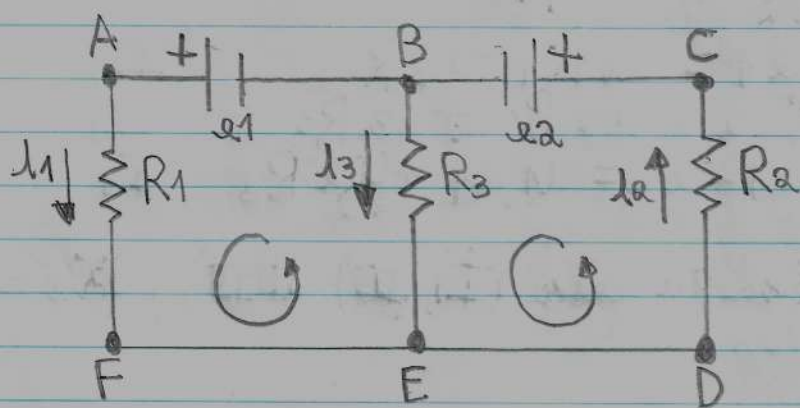 A + B + C
e1 e2
i1 R1 i3 R3 i2 R2
F E D